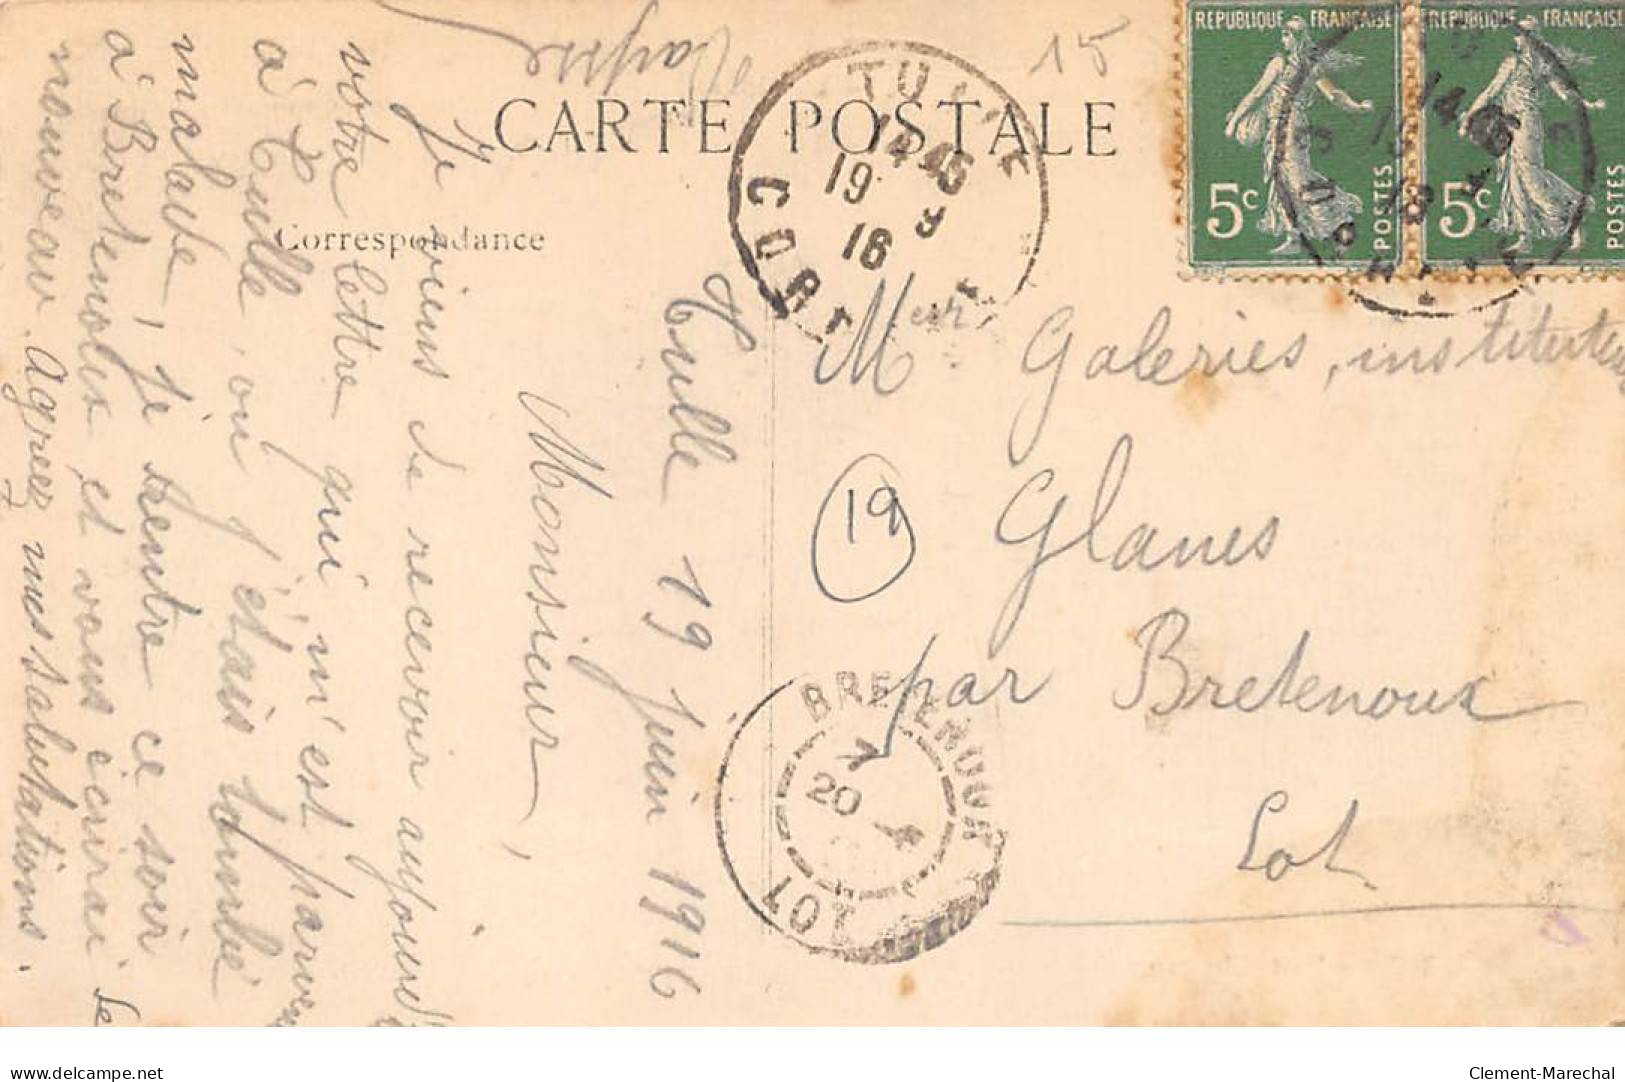 CARTE POSTALE
Correspondance
15
REPUBLIQUE FRANÇAISE
5c
POSTES
REPUBLIQUE FRANÇAISE
5c
POSTES
14 45
19 9
16
CORR
Tulle 19 juin 1916
Monsieur,
Je viens de recevoir aujourd'
votre lettre qui m'est parven
à Tulle, où j'étais tombé
malade, je rentre ce soir
à Bretenoux et vous écrirai de
nouveau. Agréez mes salutations.
Meur Galeries, instituteu
Glanes
par Bretenoux
Lot
19
BRETENOUX
7
20
LOT
delcampe.net
Clement-Marechal